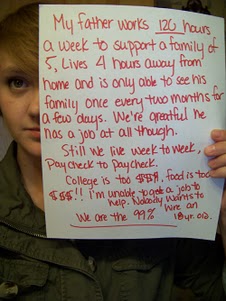 My father works 120 hours
a week to support a family of
5, Lives 4 hours away from
home and is only able to see his
family once every two months for
a few days. We're greatful he
has a job at all though.
Still we live week to week,
Paycheck to Paycheck.
College is too $$$$, food is too
$$$!! I'm unable to get a job to
help. Nobody wants to
hire an
18 yr. old.
We are the 99%